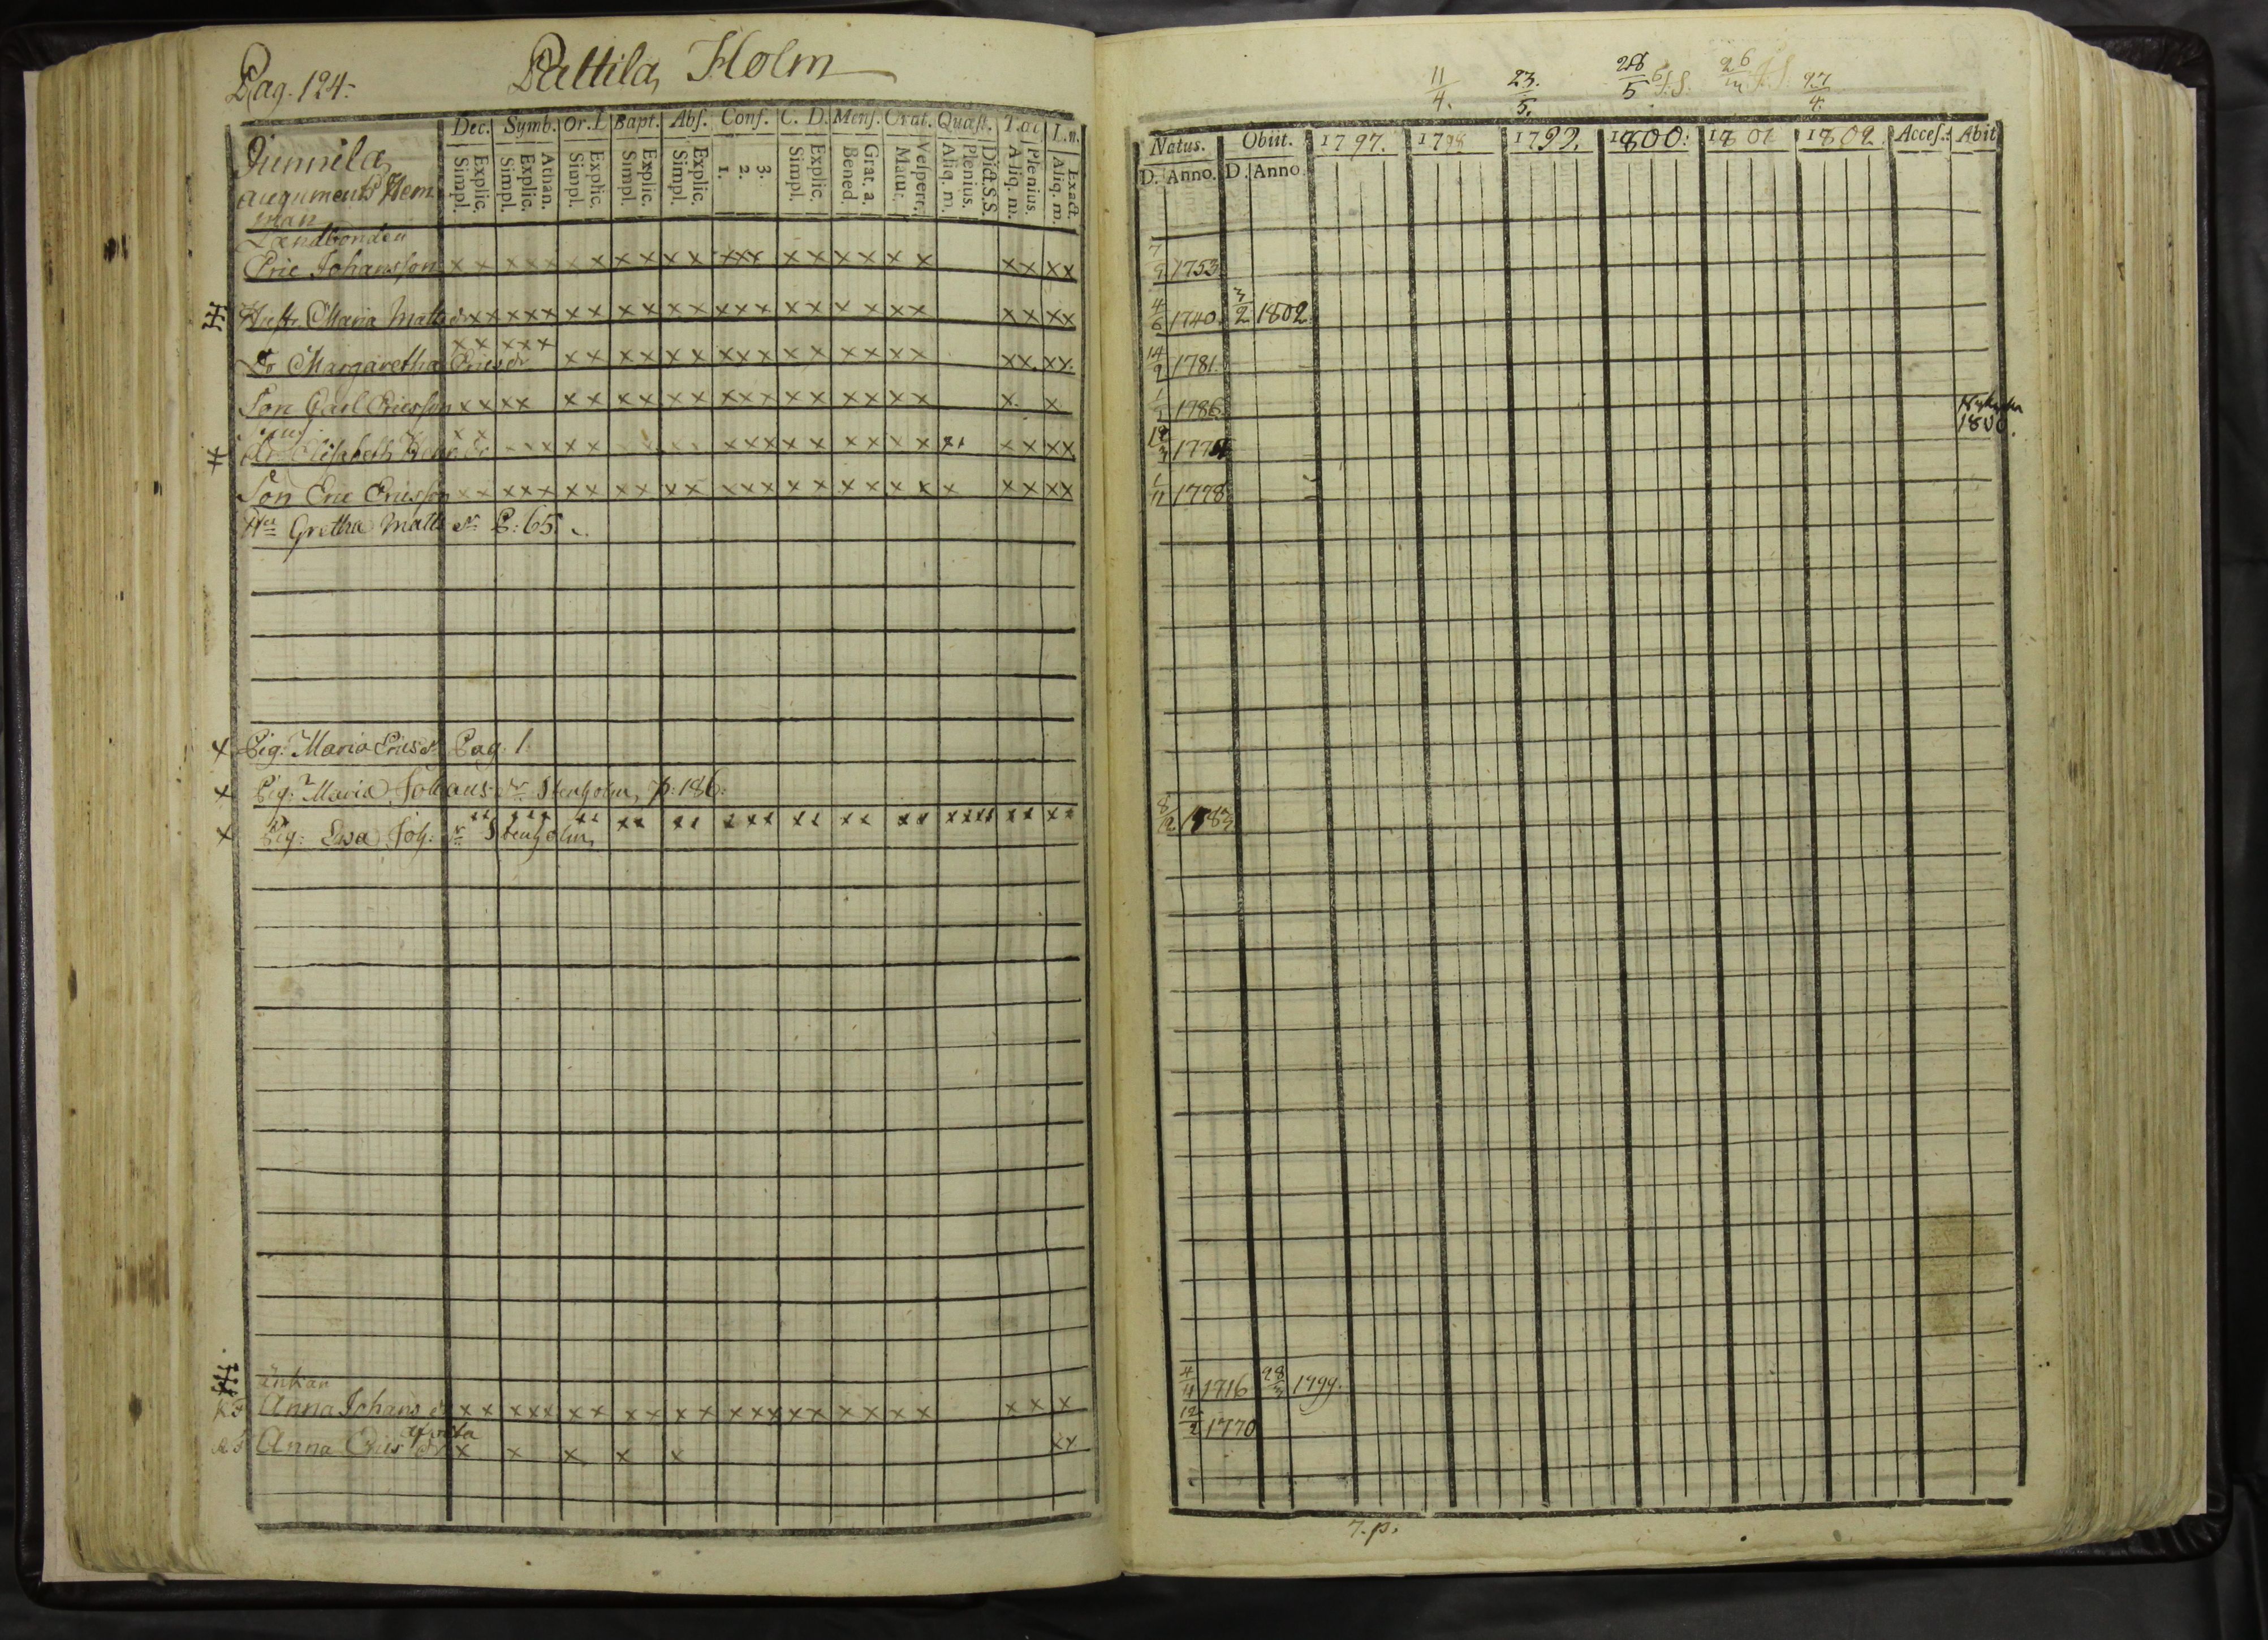 Pag. 124.
Pattila Holm
Dec. Symb. Or. D. Bapt. Abs. Conf. C. D. Mens. Orat. Quæst. T. œc L. n.
Junnila
augments Hem
man
Explic. Simpl. Athan. Explic. Simpl. Explic. Simpl. Explic. Simpl. Explic. Simpl. 3. 2. 1. Explic. Simpl. Grat. a. Bened. Vesper. Matut. Dict. S.S. Plenius. Aliq. m. Plenius. Aliq. m. Exact. Aliq. m.
Landbonden
Eric Johansson x x x x x x x x x x x x x x x x x x x x x x x x
Hustr. Maria Matts dr x x x x x x x x x x x x x x x x x x x x x x x x
Dr Margaretha Erics dr x x x x x x x x x x x x x x x x x x x x x x x x
Son Carl Ericsson x x x x x x x x x x x x x x x x x x x x x x
Elisabeth
Son Eric Ericsson x x x x x x x x x x x x x x x x x x x x x x x x x
Hu Gretha Matts dr P: 65.
x Pig: Maria Erics dr Pag. 1.
x Pig: Maria Johans dr Stenholm, p: 186.
x Pig: Lisa Joh: dr Stenholm
Enkan
Anna Johans dr x x x x x x x x x x x x x x x x x x x x x x x
Anna Erics dr x x x x x x x
11/4. 23./5. 28/5 26 27/4.
Natus. Obiit. 1797. 1798 1799. 1800. 1801 1802. Acces. Abit
D. Anno. D. Anno.
7/9 1753
4/6 1740. 3/2 1802
14/2 1781.
1/1 1786
1800.
1/11 1778
8/12 1783
4/4 1716 28/3 1799.
12/2 1770
7. p.